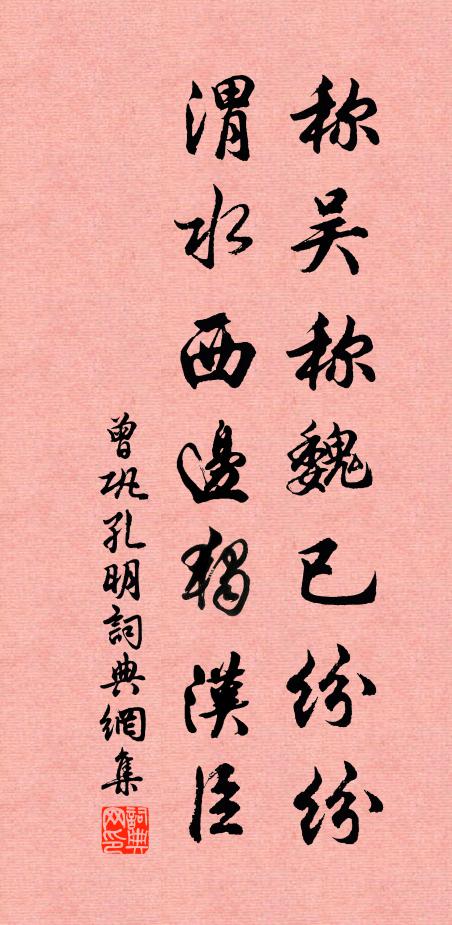 称吴称魏已纷纷
渭水西邊獨漢臣
曾巩孔明詞典網集
詞典网印